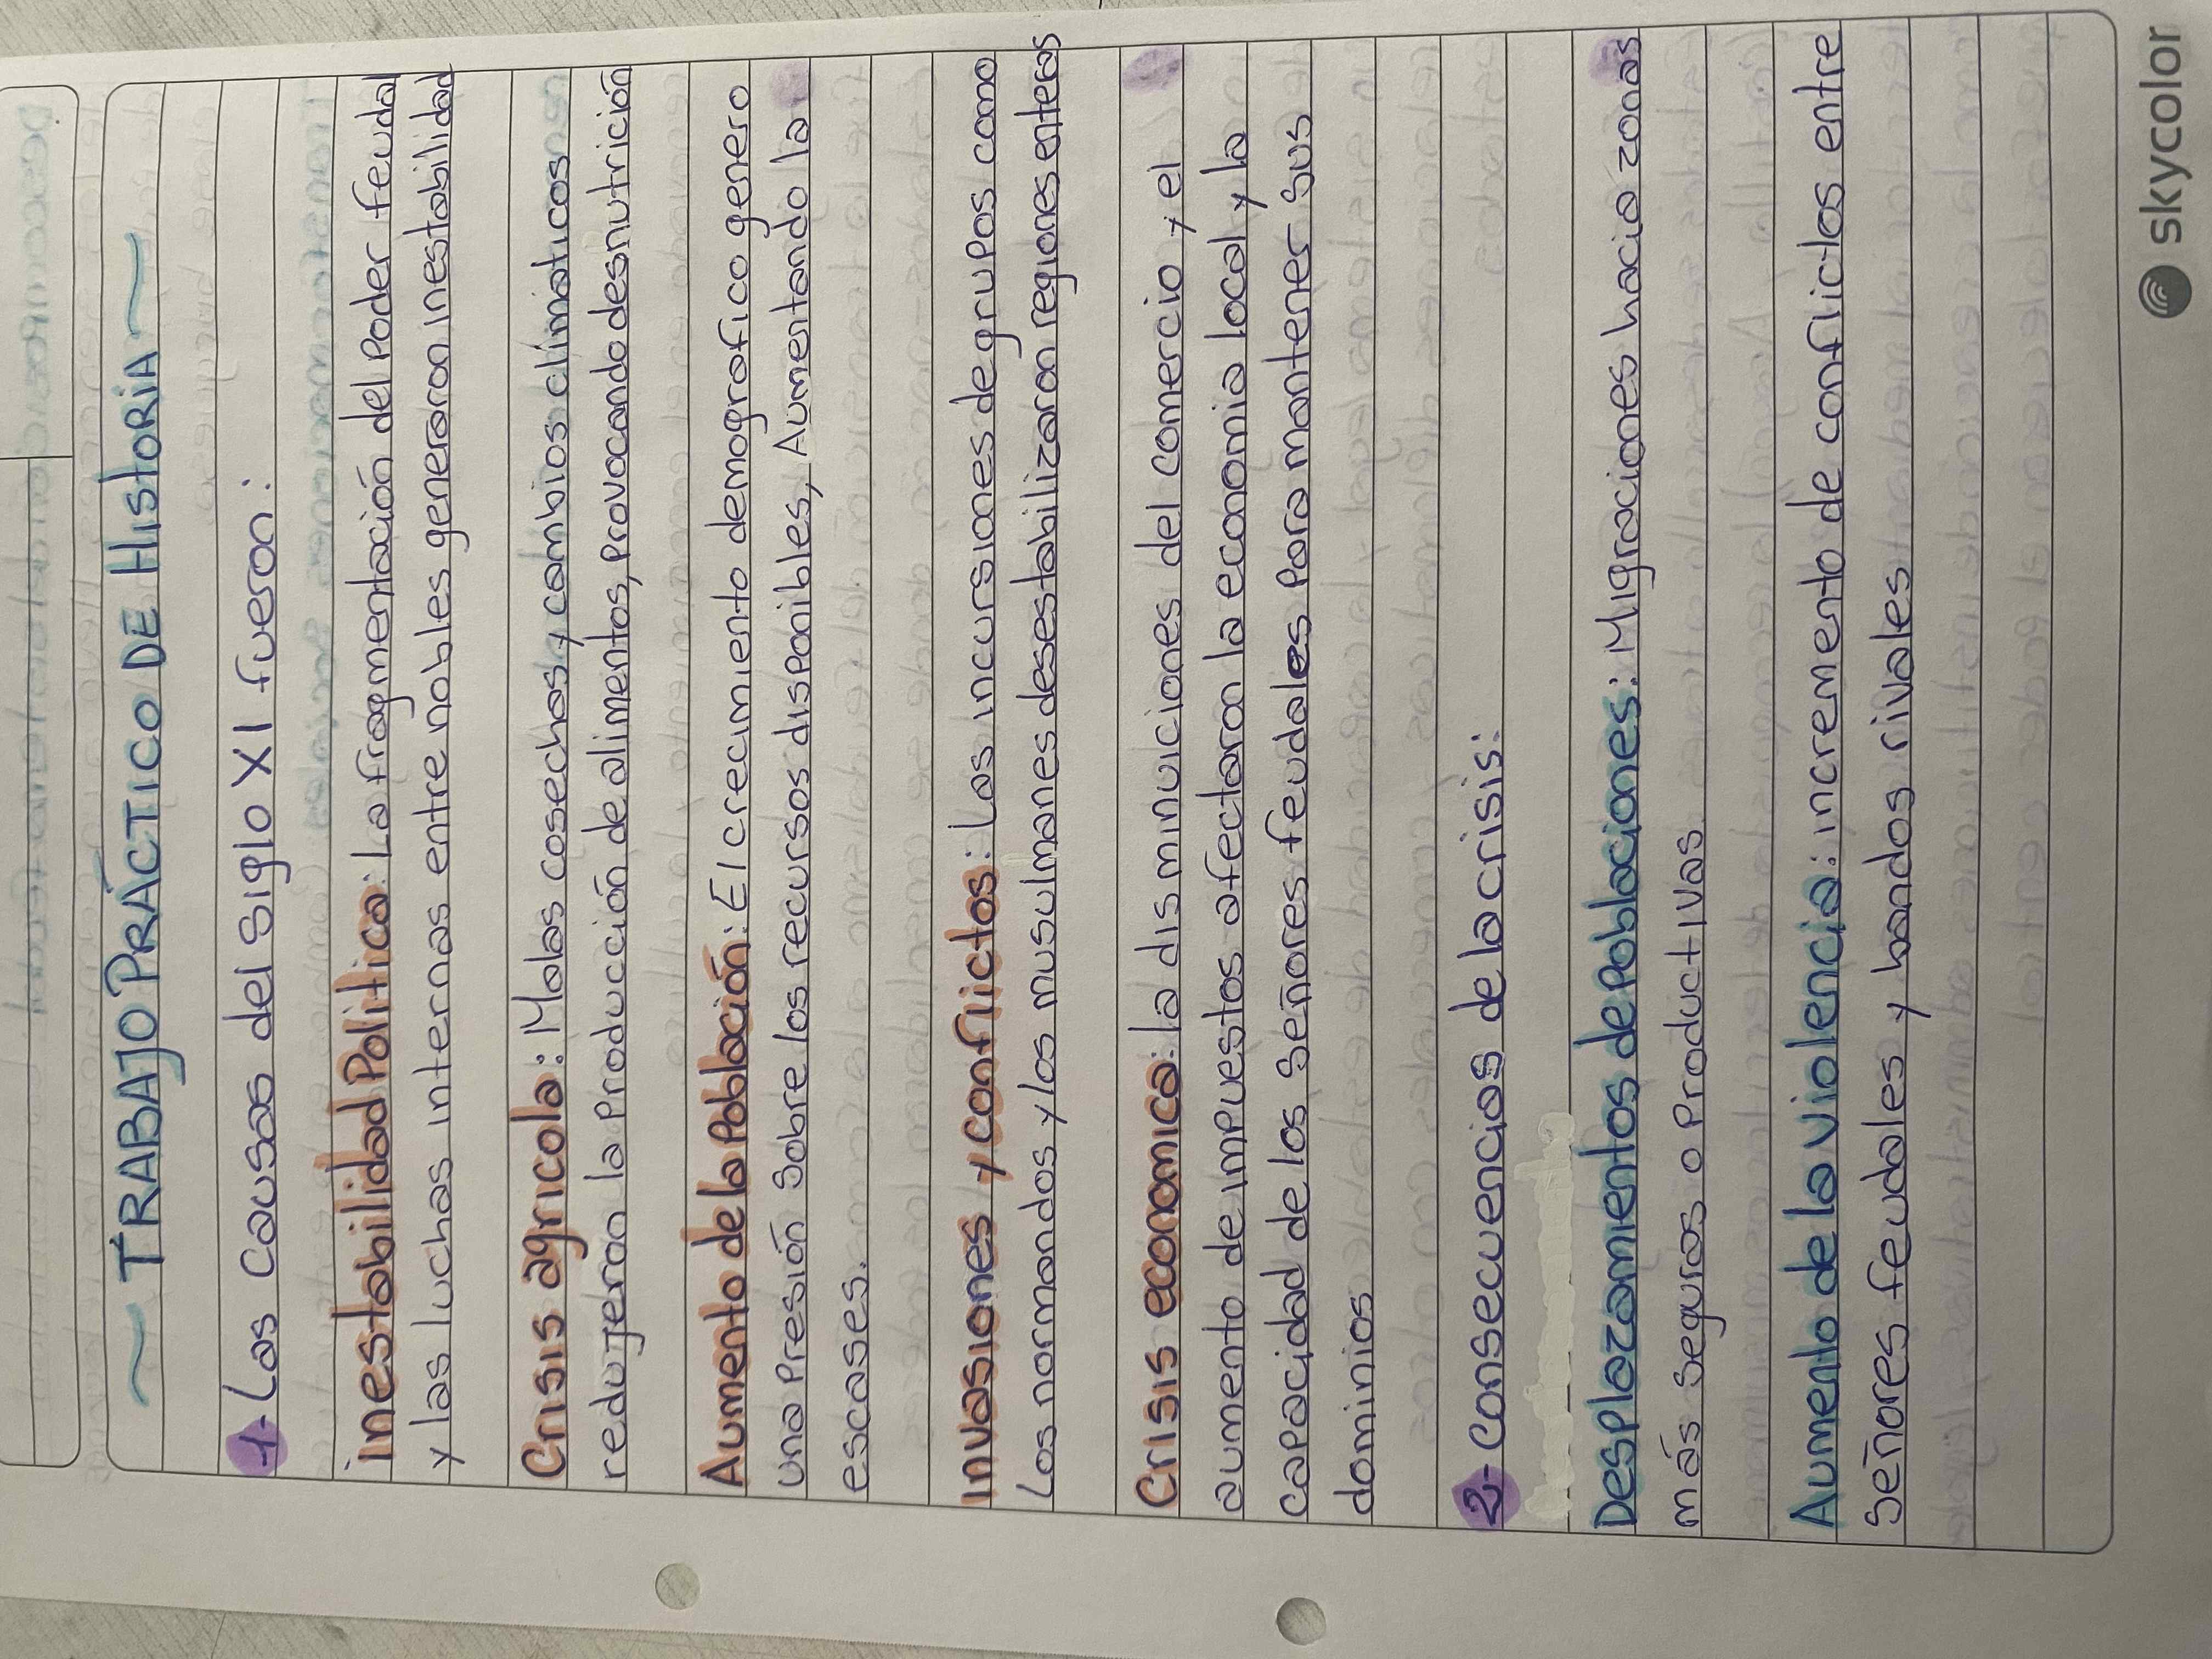 ~ TRABAJO PRÁCTICO DE HistoRiA ~
1- Las causas del siglo XI fueron:
inestabilidad Politica: La fragmentación del Poder feudal
y las luchas internas entre nobles generaron inestabilidad
Crisis agricola: Malas cosechas y cambios climaticos
redujeron la Producción de alimentos, provocando desnutrición
Aumento de la Población: El crecimiento demografico genero
una Presión sobre los recursos disponibles, Aumentando la
escases.
Invasiones y conflictos: Las incursiones de grupos como
Los normandos y los musulmanes desestabilizaron regiones enteras
Crisis economica: la disminuciones del comercio y el
aumento de impuestos afectaron la economia local y la
capacidad de los señores feudales para mantener sus
dominios
2- Consecuencias de la crisis:
Desplazamientos de Poblaciones: Migraciones hacia zonas
más seguras o Productivas
Aumento de la violencia: incremento de conflictos entre
señores feudales y bandos rivales
skycolor